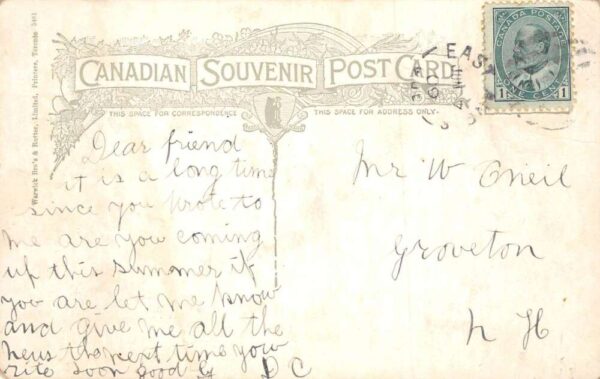 Warwick Bro's & Rutter, Limited, Printers, Toronto
CANADIAN SOUVENIR POST CARD
THIS SPACE FOR CORRESPONDENCE
THIS SPACE FOR ADDRESS ONLY
CANADA POSTAGE
1 ONE CENT 1
EAST
Dear friend
it is a long time
since you wrote to
me are you coming
up this summer if
you are let me know
and give me all the
news the next time you
rite soon good by D C
Mr W Oneil
Groveton
N H